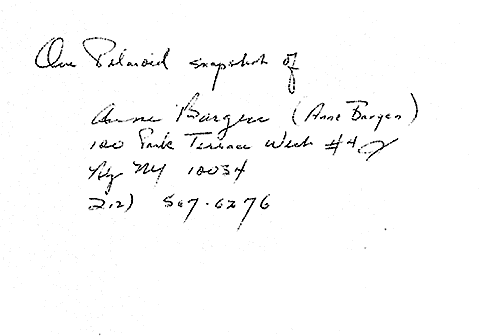 One Polaroid snapshot of
Anne Bargen (Anne Bargen)
100 Park Terrace West #4
NY 10034
212) 567-6276